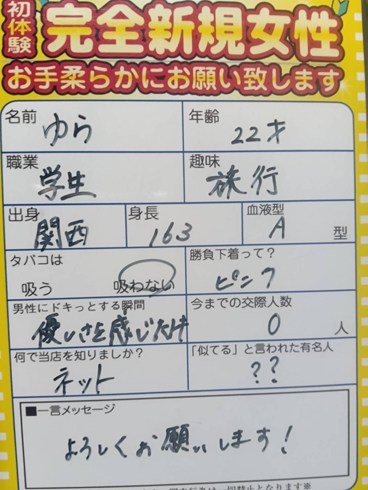 初体験
完全新規女性
お手柔らかにお願い致します
名前 ゆら
年齢 22才
職業 学生
趣味 旅行
出身 関西
身長 163
血液型 A 型
タバコは
吸う 吸わない
勝負下着って?
ピンク
男性にドキっとする瞬間
優しさを感じた時
今までの交際人数
0 人
何で当店を知りましか?
ネット
「似てる」と言われた有名人
??
■一言メッセージ
よろしくお願いします!
一切禁止となります※